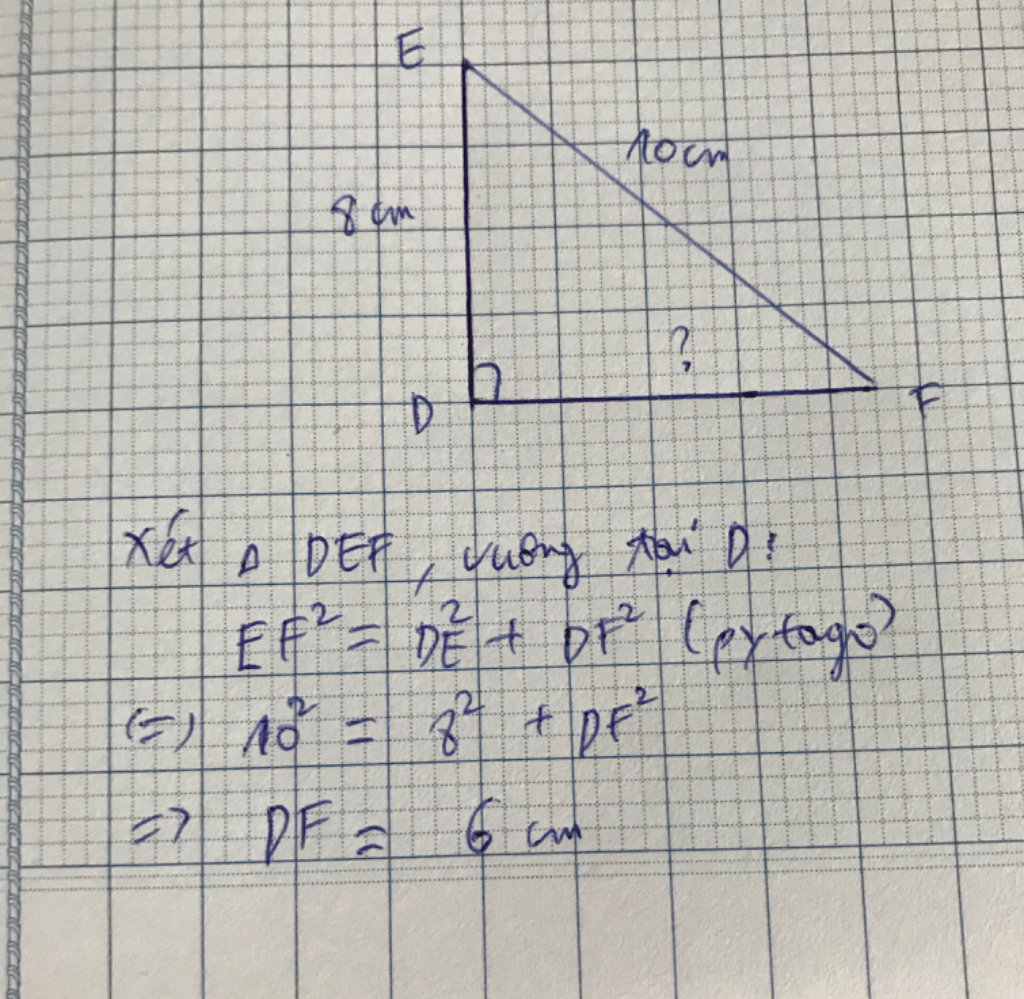 E
10cm
8 cm
?
D
F
Xét Δ DEF, vuông tại D:
EF² = DE² + DF² (pytago)
(=) 10² = 8² + DF²
=> DF = 6 cm